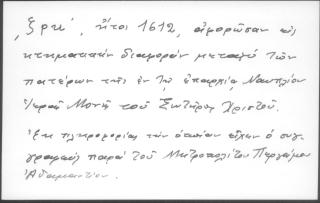 ͵ζρκ΄, ἤτοι 1612, ἀφορῶσαν εἰς
κτηματικὴν διαφορὰν μεταξὺ τῶν
πατέρων τῆς ἐν τῇ ἐπαρχίᾳ Ναυπλίου
Ἱερᾶς Μονῆς τοῦ Σωτῆρος Χριστοῦ.
Ἐκ πληροφορίας τὴν ὁποίαν εἶχεν ὁ συγ-
γραφεὺς παρὰ τοῦ Μητροπολίτου Περγάμου
Ἀδαμαντίου.